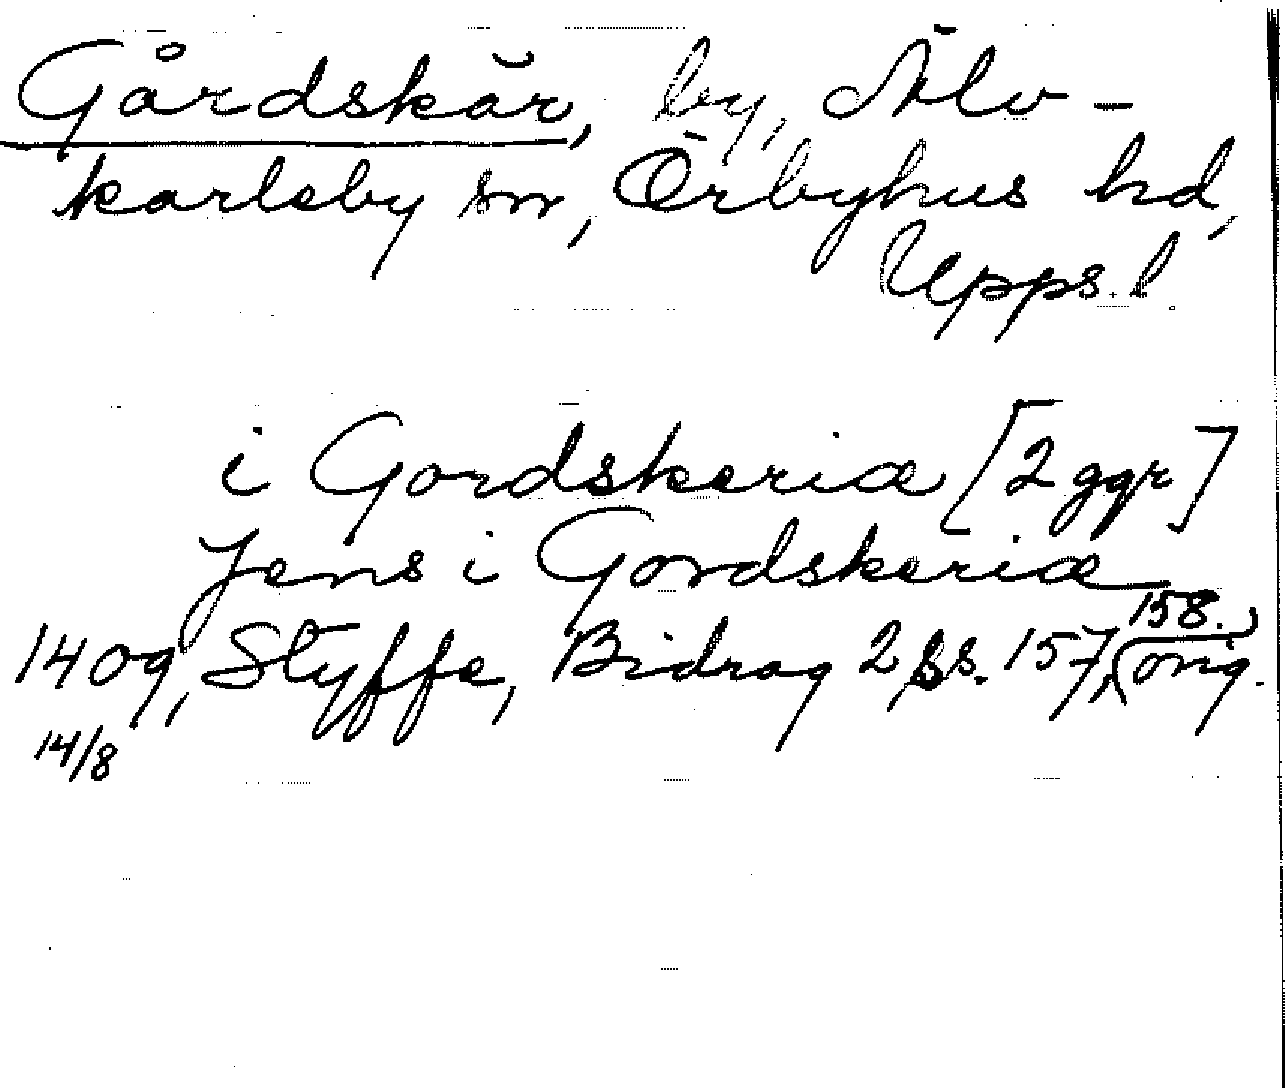 Gårdskär, by, Älv-
karleby sn, Örbyhus hd,
Upps. l.
i Gordskeriæ [2 ggr]
Jens i Gordskeriæ
1409, Styffe, Bidrag 2 ss. 157, 158. (orig.
14/8